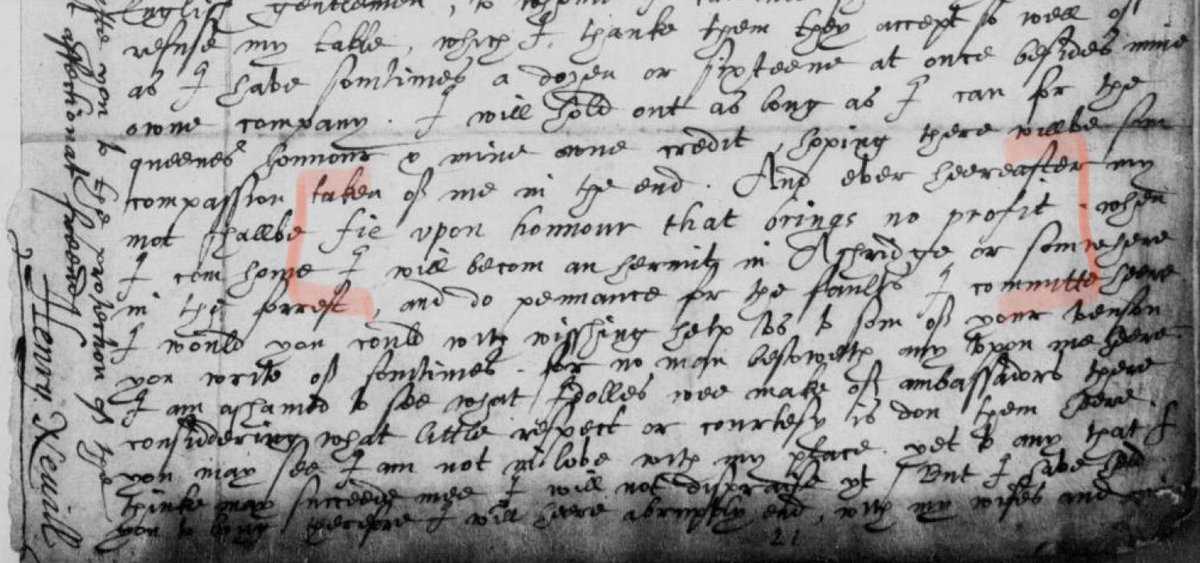 English gentlemen, to
refuse my table, which I thanke them they accept so well of
as I have somtimes a dozen or sixteene at once besides mine
owne company. I will hold out as long as I can for the
queenes honnour & mine owne credit, hoping there willbe som
compassion taken of me in the end. And ever heereafter my
mot shallbe fie upon honnour that brings no profit. when
I com home I will becom an hermitt in Ashridge or somwhere
in the forrest, and do pennance for the faults I committe heere
I would you could with wisshing help us to som of your venson
you write of somtimes. for no man bestoweth any upon me heere
I am ashamed to see what Idolles wee make of ambassadors there
considdering what little respect or courtesy is don them heere.
you may see I am not in love with my place. yet to any that I
thinke may succeede mee I will not dispraise yt. But I have held
you to long therfore I will heere abruptly end, with my wifes and
21
the protection of the
affectionat freend
Henry. Nevill